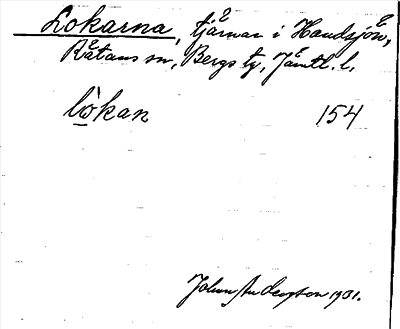 Lokarna, tjärnar i Handsjön,
Råtans sn, Bergs tg, Jämtl. l.
lò̱kan 154
John Anderzon 1931.